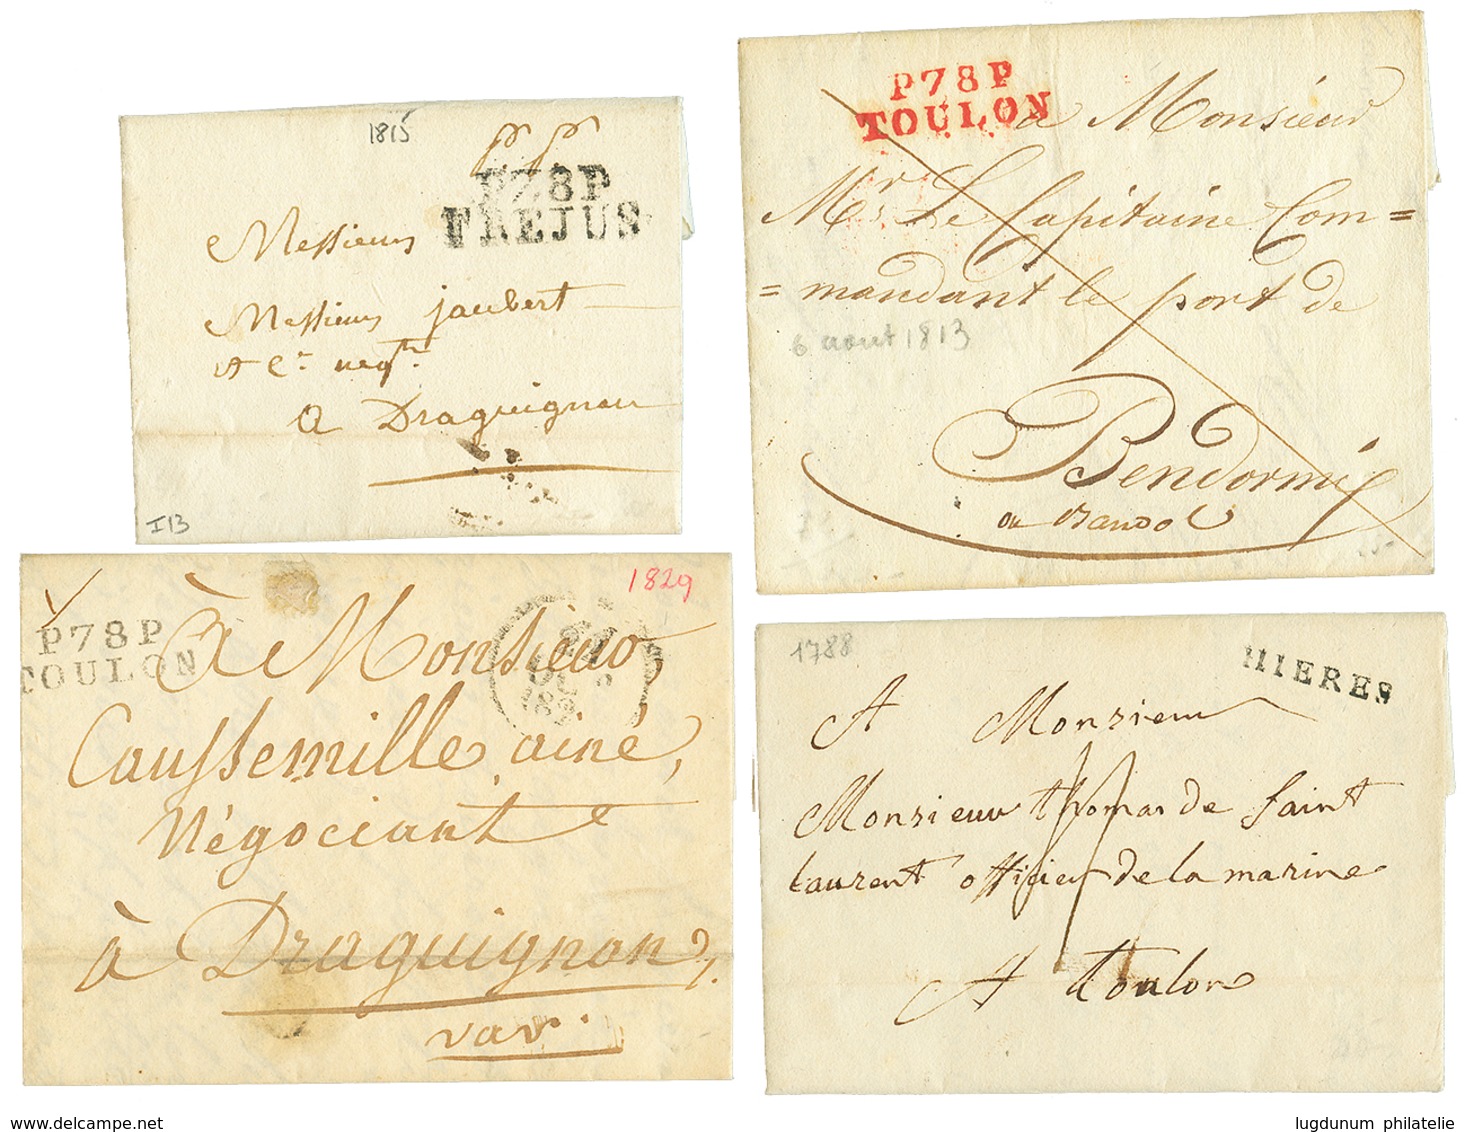 1815
P78P
FREJUS
Messieurs
Messieurs jaubert
et Ce negts
a Draguignan
I13
P78P
TOULON
a Monsieur
Mr Le Capitaine Com=
=mandant le port de
6 aout 1813
Bendormi
ou Bandol
1829
P78P
TOULON
à Monsieur
Caussemille ainé,
Négociant
à Draguignan
var.
1788
HIERES
A Monsieur
Monsieur thomas de saint
laurent officier de la marine
A toulon
www.delcampe.net
lugdunum philatelie